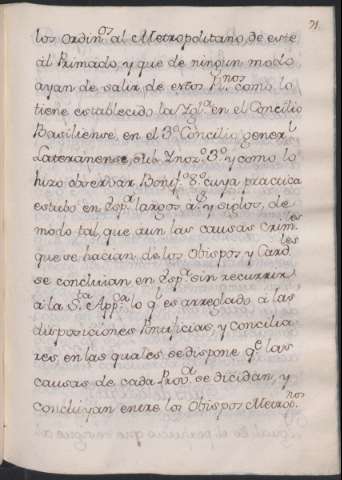 71.
los ordin.os al Metropolitano, de este
al Primado, y que de ningun modo
ayan de salir de estos R.nos como lo
tiene establecido la Ygl.a en el Concilio
Basiliense, en el 3.o Concilio gener.l
Lateranense, sub Ynoz.o 3.o y como lo
hizo observar Bonif.o 8.o cuya practica
estubo en Esp.a largos a.s y siglos, de
modo tal, que aun las causas crim.es
que se hacian de los Obispos y Card.les
se concluian en Esp.a sin recurrir
a la S.ta App.ca lo q.l es arreglado a las
disposiciones Pontificias, y concilia
res, en las quales se dispone q.e las
causas de cada Prov.a se decidan, y
concluyan entre los Obispos Metrop.nos